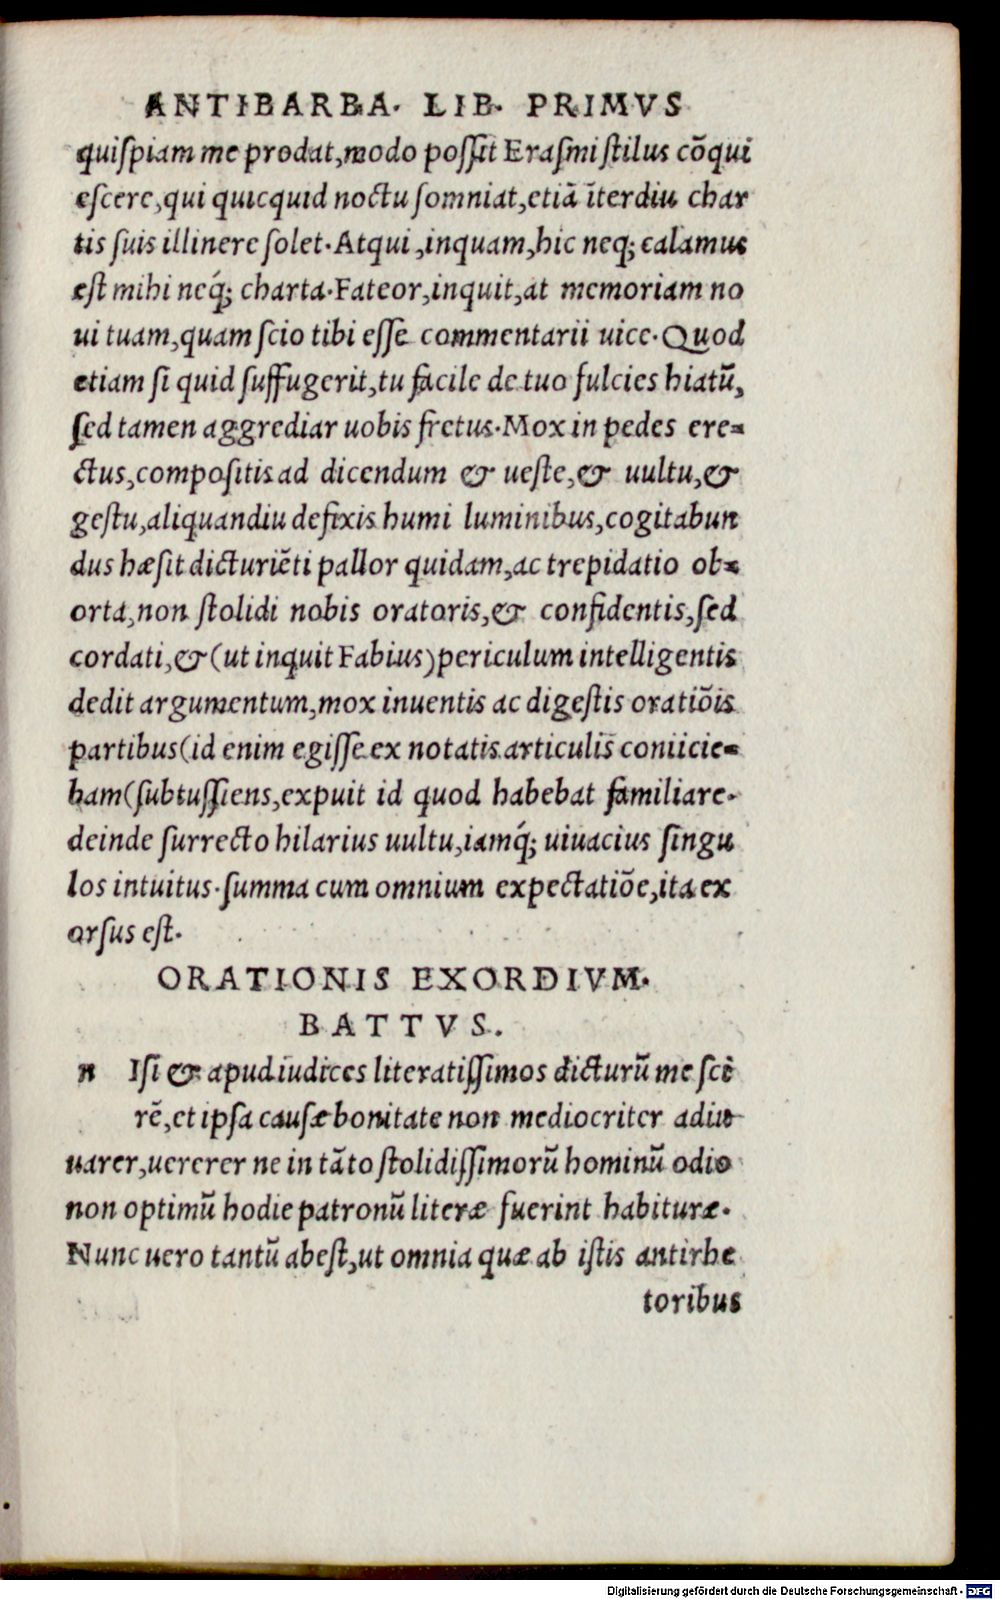 ANTIBARBA. LIB. PRIMVS
quiſpiam me prodat,modo poſſit Eraſmi ſtilus cõqui
eſcere,qui quicquid noctu ſomniat,etiã ĩterdiu char
tis ſuis illinere ſolet.Atqui,inquam,hic neq; calamus
eſt mihi neq́; charta.Fateor,inquit,at memoriam no
ui tuam,quam ſcio tibi eſſe commentarii uice.Quod
etiam ſi quid ſuffugerit,tu facile de tuo fulcies hiatũ,
ſed tamen aggrediar uobis fretus.Mox in pedes ere-
ctus,compoſitis ad dicendum & ueſte,& uultu,&
geſtu,aliquandiu defixis humi luminibus,cogitabun
dus hæſit dicturiẽti pallor quidam,ac trepidatio ob-
orta,non ſtolidi nobis oratoris,& confidentis,ſed
cordati,&(ut inquit Fabius)periculum intelligentis
dedit argumentum,mox inuentis ac digeſtis oratiõis
partibus(id enim egiſſe ex notatis articulis coniicie-
bam(ſubtuſſiens,expuit id quod habebat familiare.
deinde ſurrecto hilarius uultu,iamq́; uiuacius ſingu
los intuitus.ſumma cum omnium expectatiõe,ita ex
orſus eſt.
ORATIONIS EXORDIVM.
BATTVS.
n Iſi & apud iudices literatiſſimos dicturũ me ſci
rẽ,et ipſa cauſæ bonitate non mediocriter adiu
uarer,uererer ne in tãto ſtolidiſſimorũ hominũ odio
non optimũ hodie patronũ literæ fuerint habituræ.
Nunc uero tantũ abeſt,ut omnia quæ ab iſtis antirhe
toribus
Digitalisierung gefördert durch die Deutsche Forschungsgemeinschaft - DFG